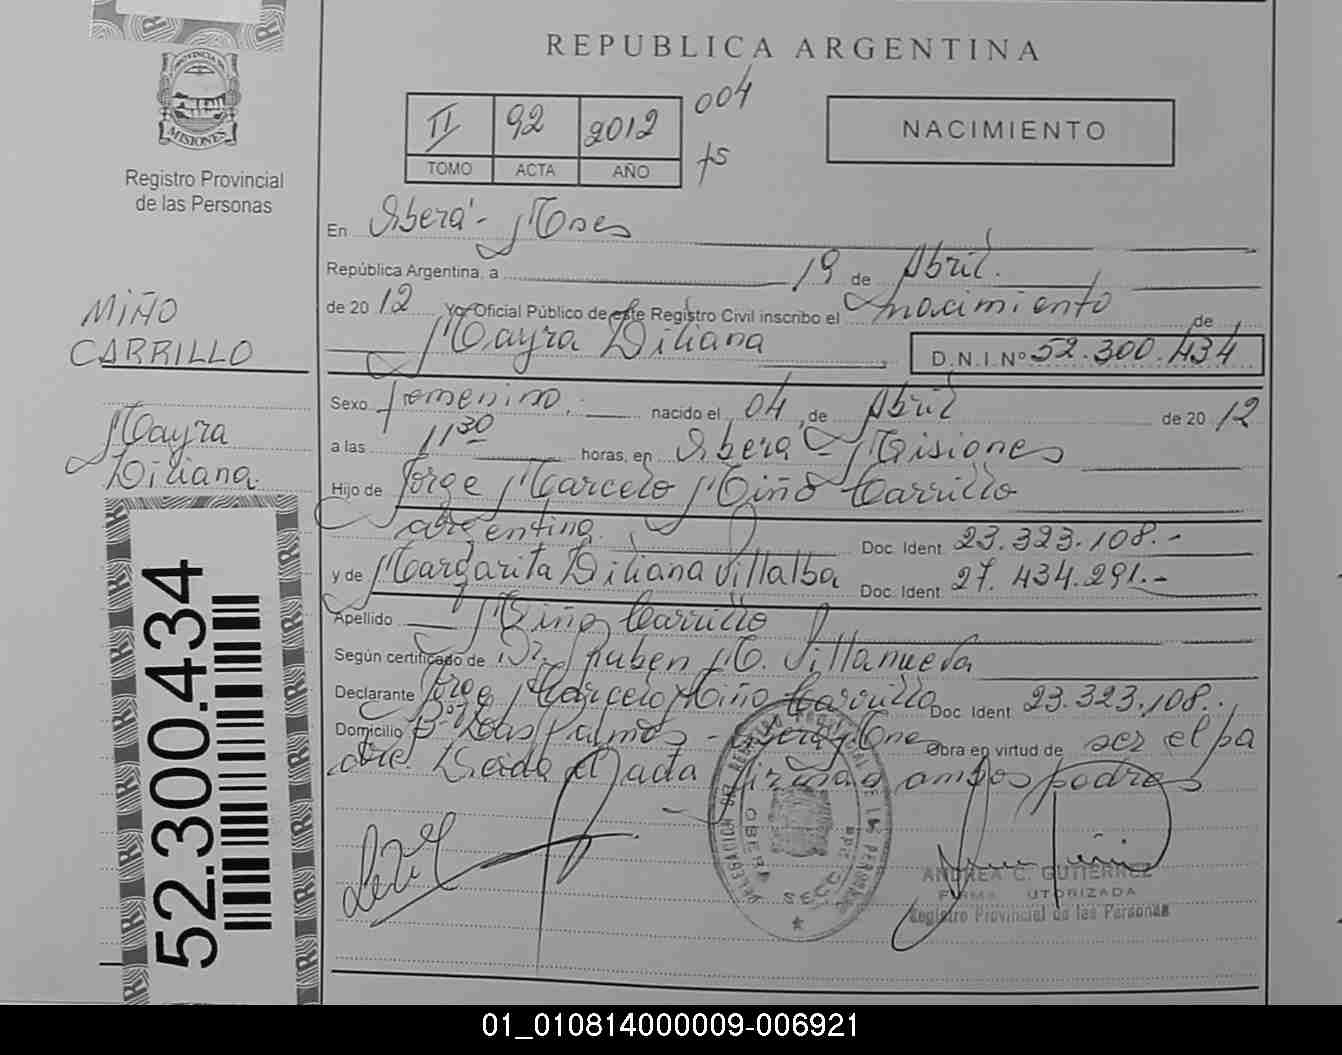 REPUBLICA ARGENTINA
MISIONES
Registro Provincial
de las Personas
II 92 2012
TOMO ACTA AÑO
004
fs
NACIMIENTO
MIÑO
CARRILLO
Mayra
Liliana
52.300.434
En Oberá - Mnes
República Argentina, a 19 de Abril.
de 20 12 Yo Oficial Público de este Registro Civil inscribo el nacimiento de
Mayra Liliana D.N.I. Nº 52.300.434
Sexo femenino. nacido el 04 de Abril de 20 12
a las 11 30 horas, en Oberá - Misiones
Hijo de Jorge Marcelo Miño Carrillo
argentina. Doc. Ident. 23.323.108.-
y de Margarita Liliana Villalba Doc. Ident. 27.434.291.-
Apellido Miño Carrillo
Según certificado de Dr. Ruben M. Villanueva
Declarante Jorge Marcelo Miño Carrillo Doc. Ident 23.323.108..
Domicilio Bº Las Palmas - Oberá Mnes Obra en virtud de ser el pa
dre. Leída el acta firman ambos padres
DELEGACION DEL REGISTRO PROVINCIAL DE LAS PERSONAS
OBERA
SECC.
ANDREA C. GUTIERREZ
FIRMA AUTORIZADA
Registro Provincial de las Personas
01_010814000009-006921